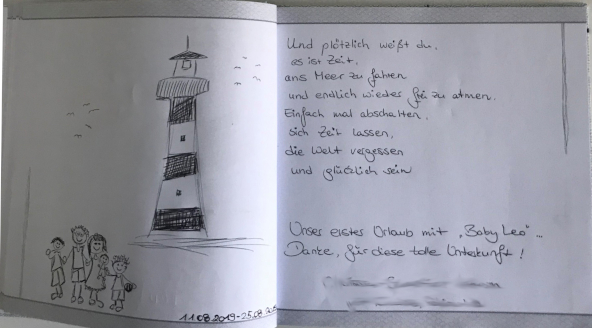 11.08.2019-25.08.2019
Und plötzlich weißt du,
es ist Zeit,
ans Meer zu fahren
und endlich wieder frei zu atmen.
Einfach mal abschalten,
sich Zeit lassen,
die Welt vergessen
und glücklich sein
Unser erstes Urlaub mit "Baby Leo"...
Danke, für diese tolle Unterkunft!